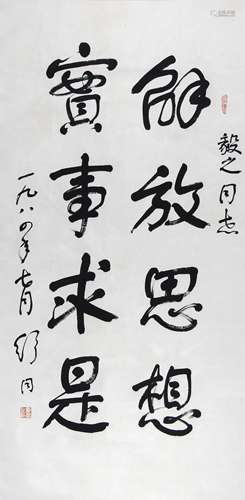 毅之同志
解放思想
實事求是
一九八四年七月 舒同